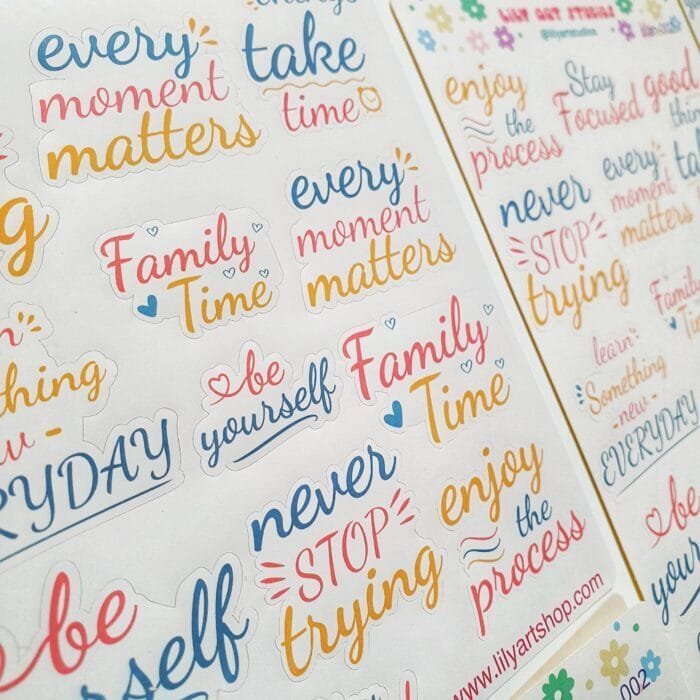 every
moment
matters
take
time
every
moment
matters
Family
Time
be
yourself
Family
Time
thing
EVERYDAY
be
yourself
never
STOP
trying
enjoy
the
process
www.lilyartshop.com
LILY ART STUDIO
@lilyartstudios
enjoy
the
process
Stay
Focused
good
never
STOP
trying
every
moment
matters
Family
Time
learn
Something
-new-
EVERYDAY
be
002